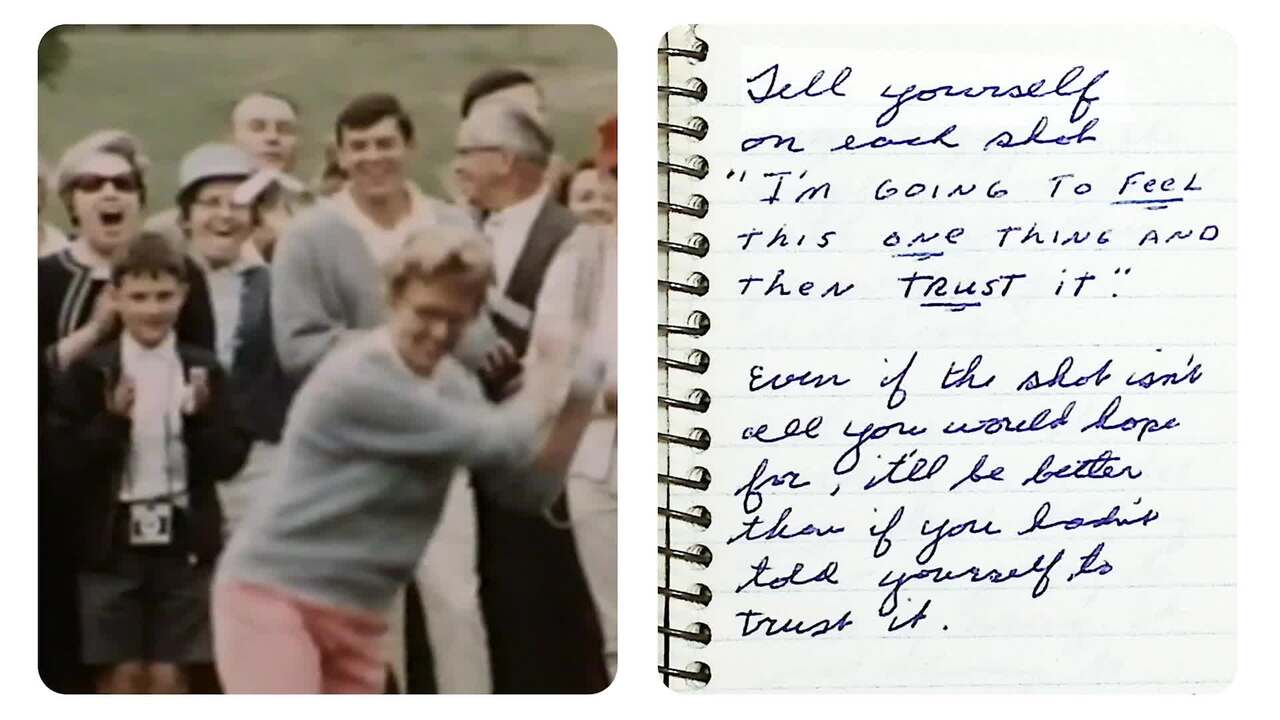 Tell yourself
on each shot
"I'M GOING TO FeeL
THIS ONe THING AND
THeN TRUST iT."
Even if the shot isn't
all you would hope
for, it'll be better
than if you hadn't
told yourself to
trust it.